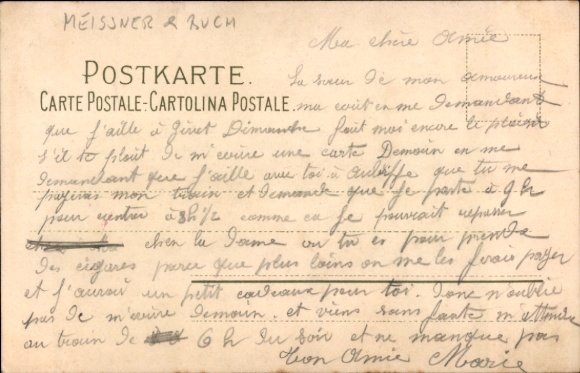 MEISSNER & BUCH
Ma chère Amie
POSTKARTE.
CARTE POSTALE-CARTOLINA POSTALE.
La sœur de mon amoureux
ma écrit en me demandant
que j'aille à Givet Dimanche fait moi encore le plaisir
s'il te plait de m'écrire une carte Demain en me
demandant que j'aille avec toi à que tu me
payeras mon train et demande que je parte à 9 h
pour rentrer à 8h 1/2 comme ca je pourrait repasser
chez la dame ou tu es pour prendre
des cigares parce que plus loins on me les ferais payer
et j'aurait un petit cadeaux pour toi. donc n'oublie
pas de m'écrire demain. et viens sans faute m'attendre
au train de 6 h du soir et ne manque pas
Ton Amie Marie